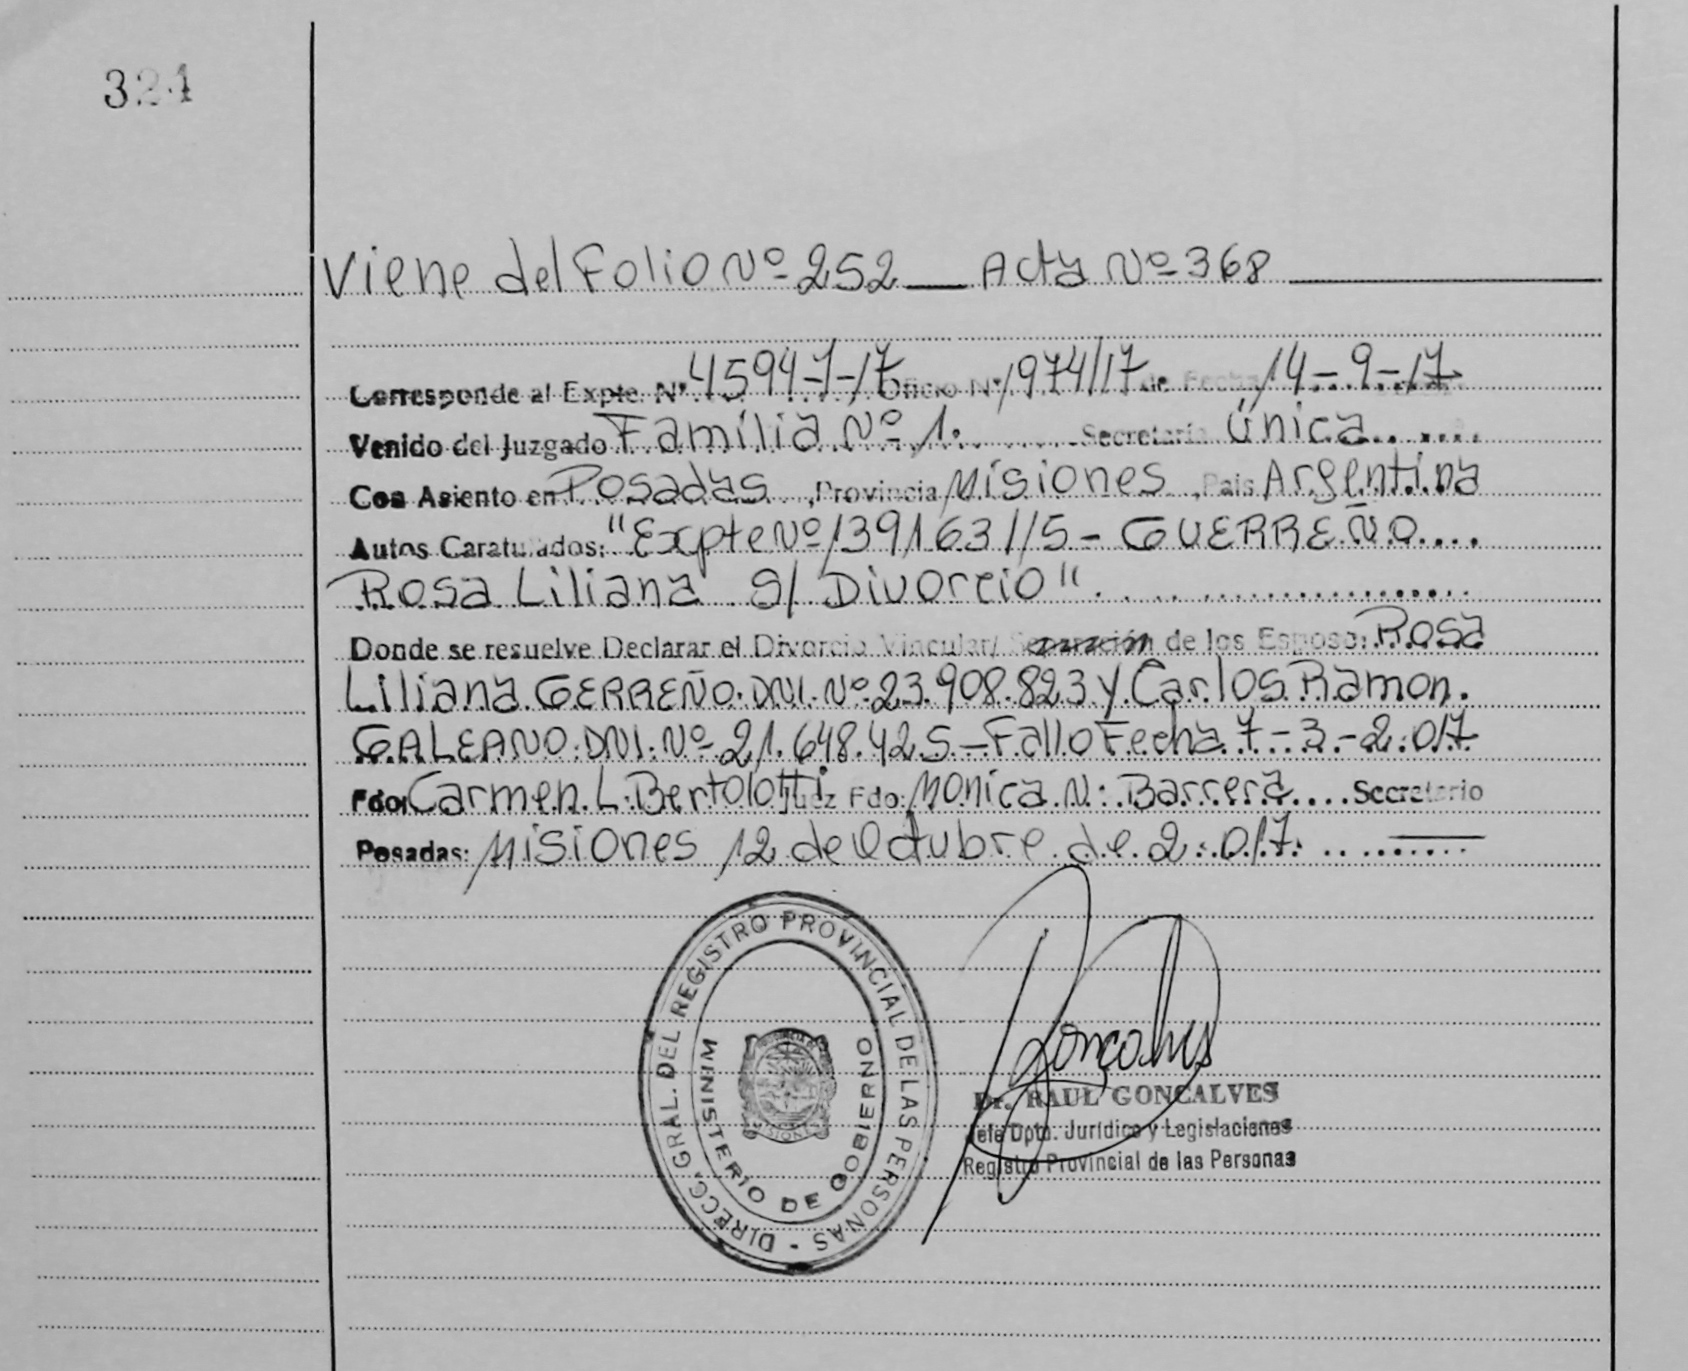 324
Viene del Folio Nº 252 — Acta Nº 368
Corresponde al Expte. Nº 45947-17 Oficio Nº 1974/17 de Fecha 14-9-17
Venido del Juzgado Familia Nº 1. Secretaría Única
Con Asiento en Posadas, Provincia Misiones, País Argentina
Autos Caratulados: "Expte Nº 139163/15 - GUERREÑO
Rosa Liliana S/ Divorcio"
Donde se resuelve Declarar el Divorcio Vincular/ Separación de los Esposo: Rosa
Liliana GERREÑO. DNI. Nº 23.908.823 y Carlos Ramon.
GALEANO. DNI. Nº 21.648.425 - Fallo Fecha 7-3-2.017
Fdo: Carmen L. Bertolotti Juez Fdo: Monica N. Barrera Secretario
Posadas: Misiones 12 de Octubre de 2.017.
DIRECC. GRAL. DEL REGISTRO PROVINCIAL DE LAS PERSONAS -
MINISTERIO DE GOBIERNO
MISIONES
Goncalves
Dr. RAUL GONCALVES
Jefe Dpto. Jurídico y Legislaciones
Registro Provincial de las Personas